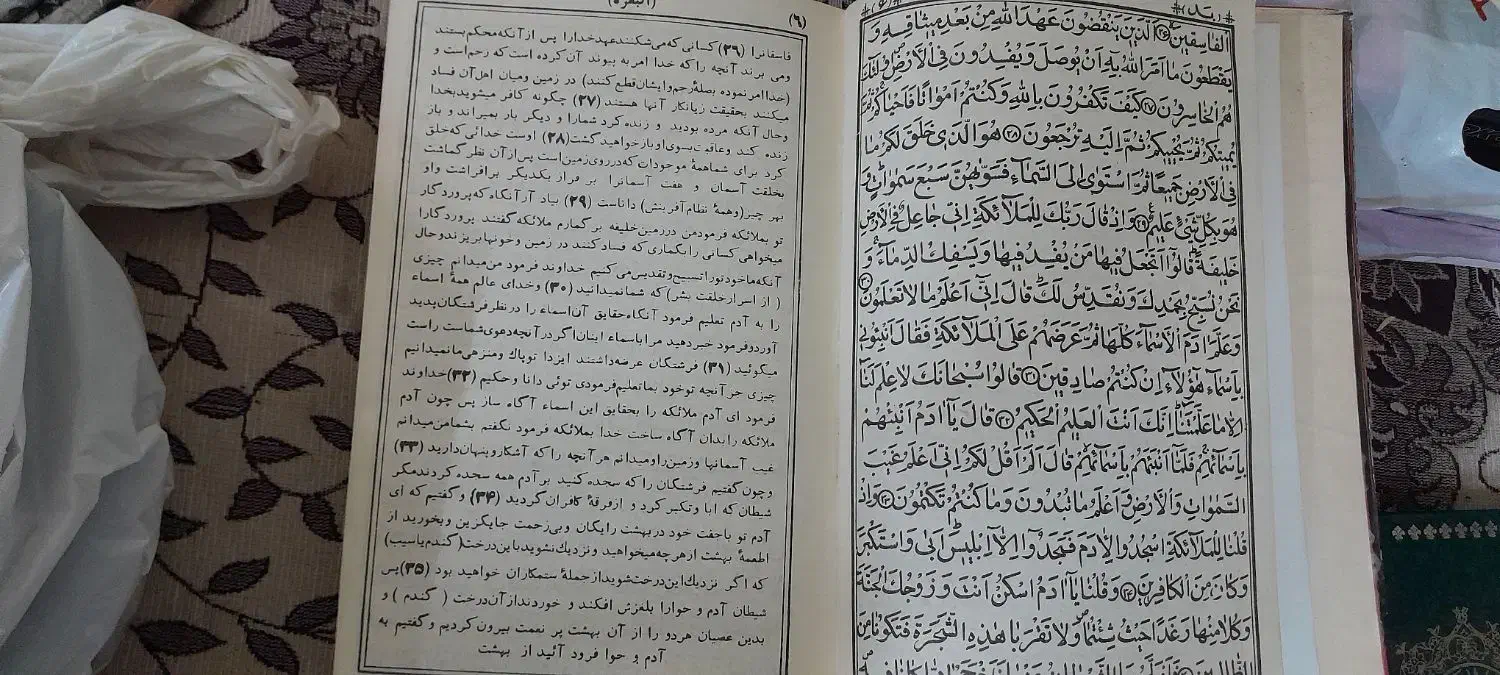 الْفَاسِقِينَ ﴿۲۶﴾ اَلَّذِينَ يَنْقُضُونَ عَهْدَ اللَّهِ مِنْ بَعْدِ مِيثَاقِهِ وَ
يَقْطَعُونَ مَا اَمَرَ اللَّهُ بِهِ اَنْ يُوصَلَ وَيُفْسِدُونَ فِى الْاَرْضِ اُولٰٓئِكَ
هُمُ الْخَاسِرُونَ ﴿۲۷﴾ كَيْفَ تَكْفُرُونَ بِاللَّهِ وَكُنْتُمْ اَمْوَاتًا فَاَحْيَاكُمْ ثُمَّ
يُمِيتُكُمْ ثُمَّ يُحْيِيكُمْ ثُمَّ اِلَيْهِ تُرْجَعُونَ ﴿۲۸﴾ هُوَ الَّذِى خَلَقَ لَكُمْ مَا
فِى الْاَرْضِ جَمِيعًا ثُمَّ اسْتَوٰى اِلَى السَّمَاءِ فَسَوّٰيهُنَّ سَبْعَ سَمٰوَاتٍ وَ
هُوَ بِكُلِّ شَىْءٍ عَلِيمٌ ﴿۲۹﴾ وَاِذْ قَالَ رَبُّكَ لِلْمَلَآئِكَةِ اِنِّى جَاعِلٌ فِى الْاَرْضِ
خَلِيفَةً قَالُوٓا اَتَجْعَلُ فِيهَا مَنْ يُفْسِدُ فِيهَا وَيَسْفِكُ الدِّمَاءَ وَ
نَحْنُ نُسَبِّحُ بِحَمْدِكَ وَنُقَدِّسُ لَكَ قَالَ اِنِّىٓ اَعْلَمُ مَا لَا تَعْلَمُونَ ﴿۳۰﴾
وَعَلَّمَ اٰدَمَ الْاَسْمَاءَ كُلَّهَا ثُمَّ عَرَضَهُمْ عَلَى الْمَلَآئِكَةِ فَقَالَ اَنْبِئُونِى
بِاَسْمَاءِ هٰٓؤُلَاءِ اِنْ كُنْتُمْ صَادِقِينَ ﴿۳۱﴾ قَالُوا سُبْحَانَكَ لَا عِلْمَ لَنَا
اِلَّا مَا عَلَّمْتَنَا اِنَّكَ اَنْتَ الْعَلِيمُ الْحَكِيمُ ﴿۳۲﴾ قَالَ يَآ اٰدَمُ اَنْبِئْهُمْ
بِاَسْمَآئِهِمْ فَلَمَّا اَنْبَئَهُمْ بِاَسْمَآئِهِمْ قَالَ اَلَمْ اَقُلْ لَكُمْ اِنِّى اَعْلَمُ غَيْبَ
السَّمٰوَاتِ وَالْاَرْضِ وَاَعْلَمُ مَا تُبْدُونَ وَمَا كُنْتُمْ تَكْتُمُونَ ﴿۳۳﴾ وَاِذْ
قُلْنَا لِلْمَلَآئِكَةِ اسْجُدُوا لِاٰدَمَ فَسَجَدُوٓا اِلَّآ اِبْلِيسَ اَبٰى وَاسْتَكْبَرَ
وَكَانَ مِنَ الْكَافِرِينَ ﴿۳۴﴾ وَقُلْنَا يَآ اٰدَمُ اسْكُنْ اَنْتَ وَزَوْجُكَ الْجَنَّةَ
وَكُلَا مِنْهَا رَغَدًا حَيْثُ شِئْتُمَا وَلَا تَقْرَبَا هٰذِهِ الشَّجَرَةَ فَتَكُونَا مِنَ
(البقره) (۶)
فاسقانرا (۲۶) کسانی که می‌شکنند عهد خدا را پس از آنکه محکم بستند
ومی برند آنچه را که خدا امر به پیوند آن کرده است که رحم است و
(خدا امر نموده بصلهٔ رحم و ایشان قطع کنند) در زمین و میان اهل آن فساد
میکنند بحقیقت زیانکار آنها هستند (۲۷) چگونه کافر میشوید بخدا
وحال آنکه مرده بودید و زنده کرد شما را و دیگر بار بمیراند و باز
زنده کند و عاقبت بسوی او باز خواهید گشت (۲۸) اوست خدائی که خلق
کرد برای شما همهٔ موجودات که در روی زمین است پس از آن نظر گماشت
بخلقت آسمان و هفت آسمانرا بر فراز یکدیگر برافراشت و او
بهر چیز (و همهٔ نظام آفرینش) داناست (۲۹) بیاد آر آنگاه که پروردگار
تو بملائکه فرمود من در زمین خلیفه بر گمارم ملائکه گفتند پروردگارا
میخواهی کسانی را بگماری که فساد کنند در زمین و خونها بریزند و حال
آنکه ما خود تو را تسبیح و تقدیس می کنیم خداوند فرمود من میدانم چیزی
( از اسرار خلقت بشر) که شما نمیدانید (۳۰) و خدای عالم همهٔ اسماء
را به آدم تعلیم فرمود آنگاه حقایق آن اسماء را در نظر فرشتگان پدید
آورد و فرمود خبر دهید مرا باسماء اینان اگر در آنچه دعوی شماست راست
میگوئید (۳۱) فرشتگان عرضه داشتند ایزدا تو پاک و منزهی ما نمیدانیم
چیزی جز آنچه تو خود بما تعلیم فرمودی توئی دانا و حکیم (۳۲) خداوند
فرمود ای آدم ملائکه را بحقایق این اسماء آگاه ساز پس چون آدم
ملائکه را بدان آگاه ساخت خدا بملائکه فرمود نگفتم بشما من میدانم
غیب آسمانها و زمین را و میدانم هر آنچه را که آشکار و پنهان دارید (۳۳)
و چون گفتیم فرشتگان را که سجده کنید بر آدم همه سجده کردند مگر
شیطان که ابا و تکبر کرد و از فرقهٔ کافران گردید (۳۴) و گفتیم که ای
آدم تو با جفت خود در بهشت رایگان و بی‌زحمت جایگزین و بخورید از
اطعمهٔ بهشت از هر چه میخواهید و نزدیک نشوید با این درخت (گندم یا سیب)
که اگر نزدیک این درخت شوید از جملهٔ ستمکاران خواهید بود (۳۵) پس
شیطان آدم و حوا را بلغزش افکند و خوردند از آن درخت ( گندم ) و
بدین عصیان هر دو را از آن بهشت پر نعمت بیرون کردیم و گفتیم به
آدم و حوا فرود آئید از بهشت